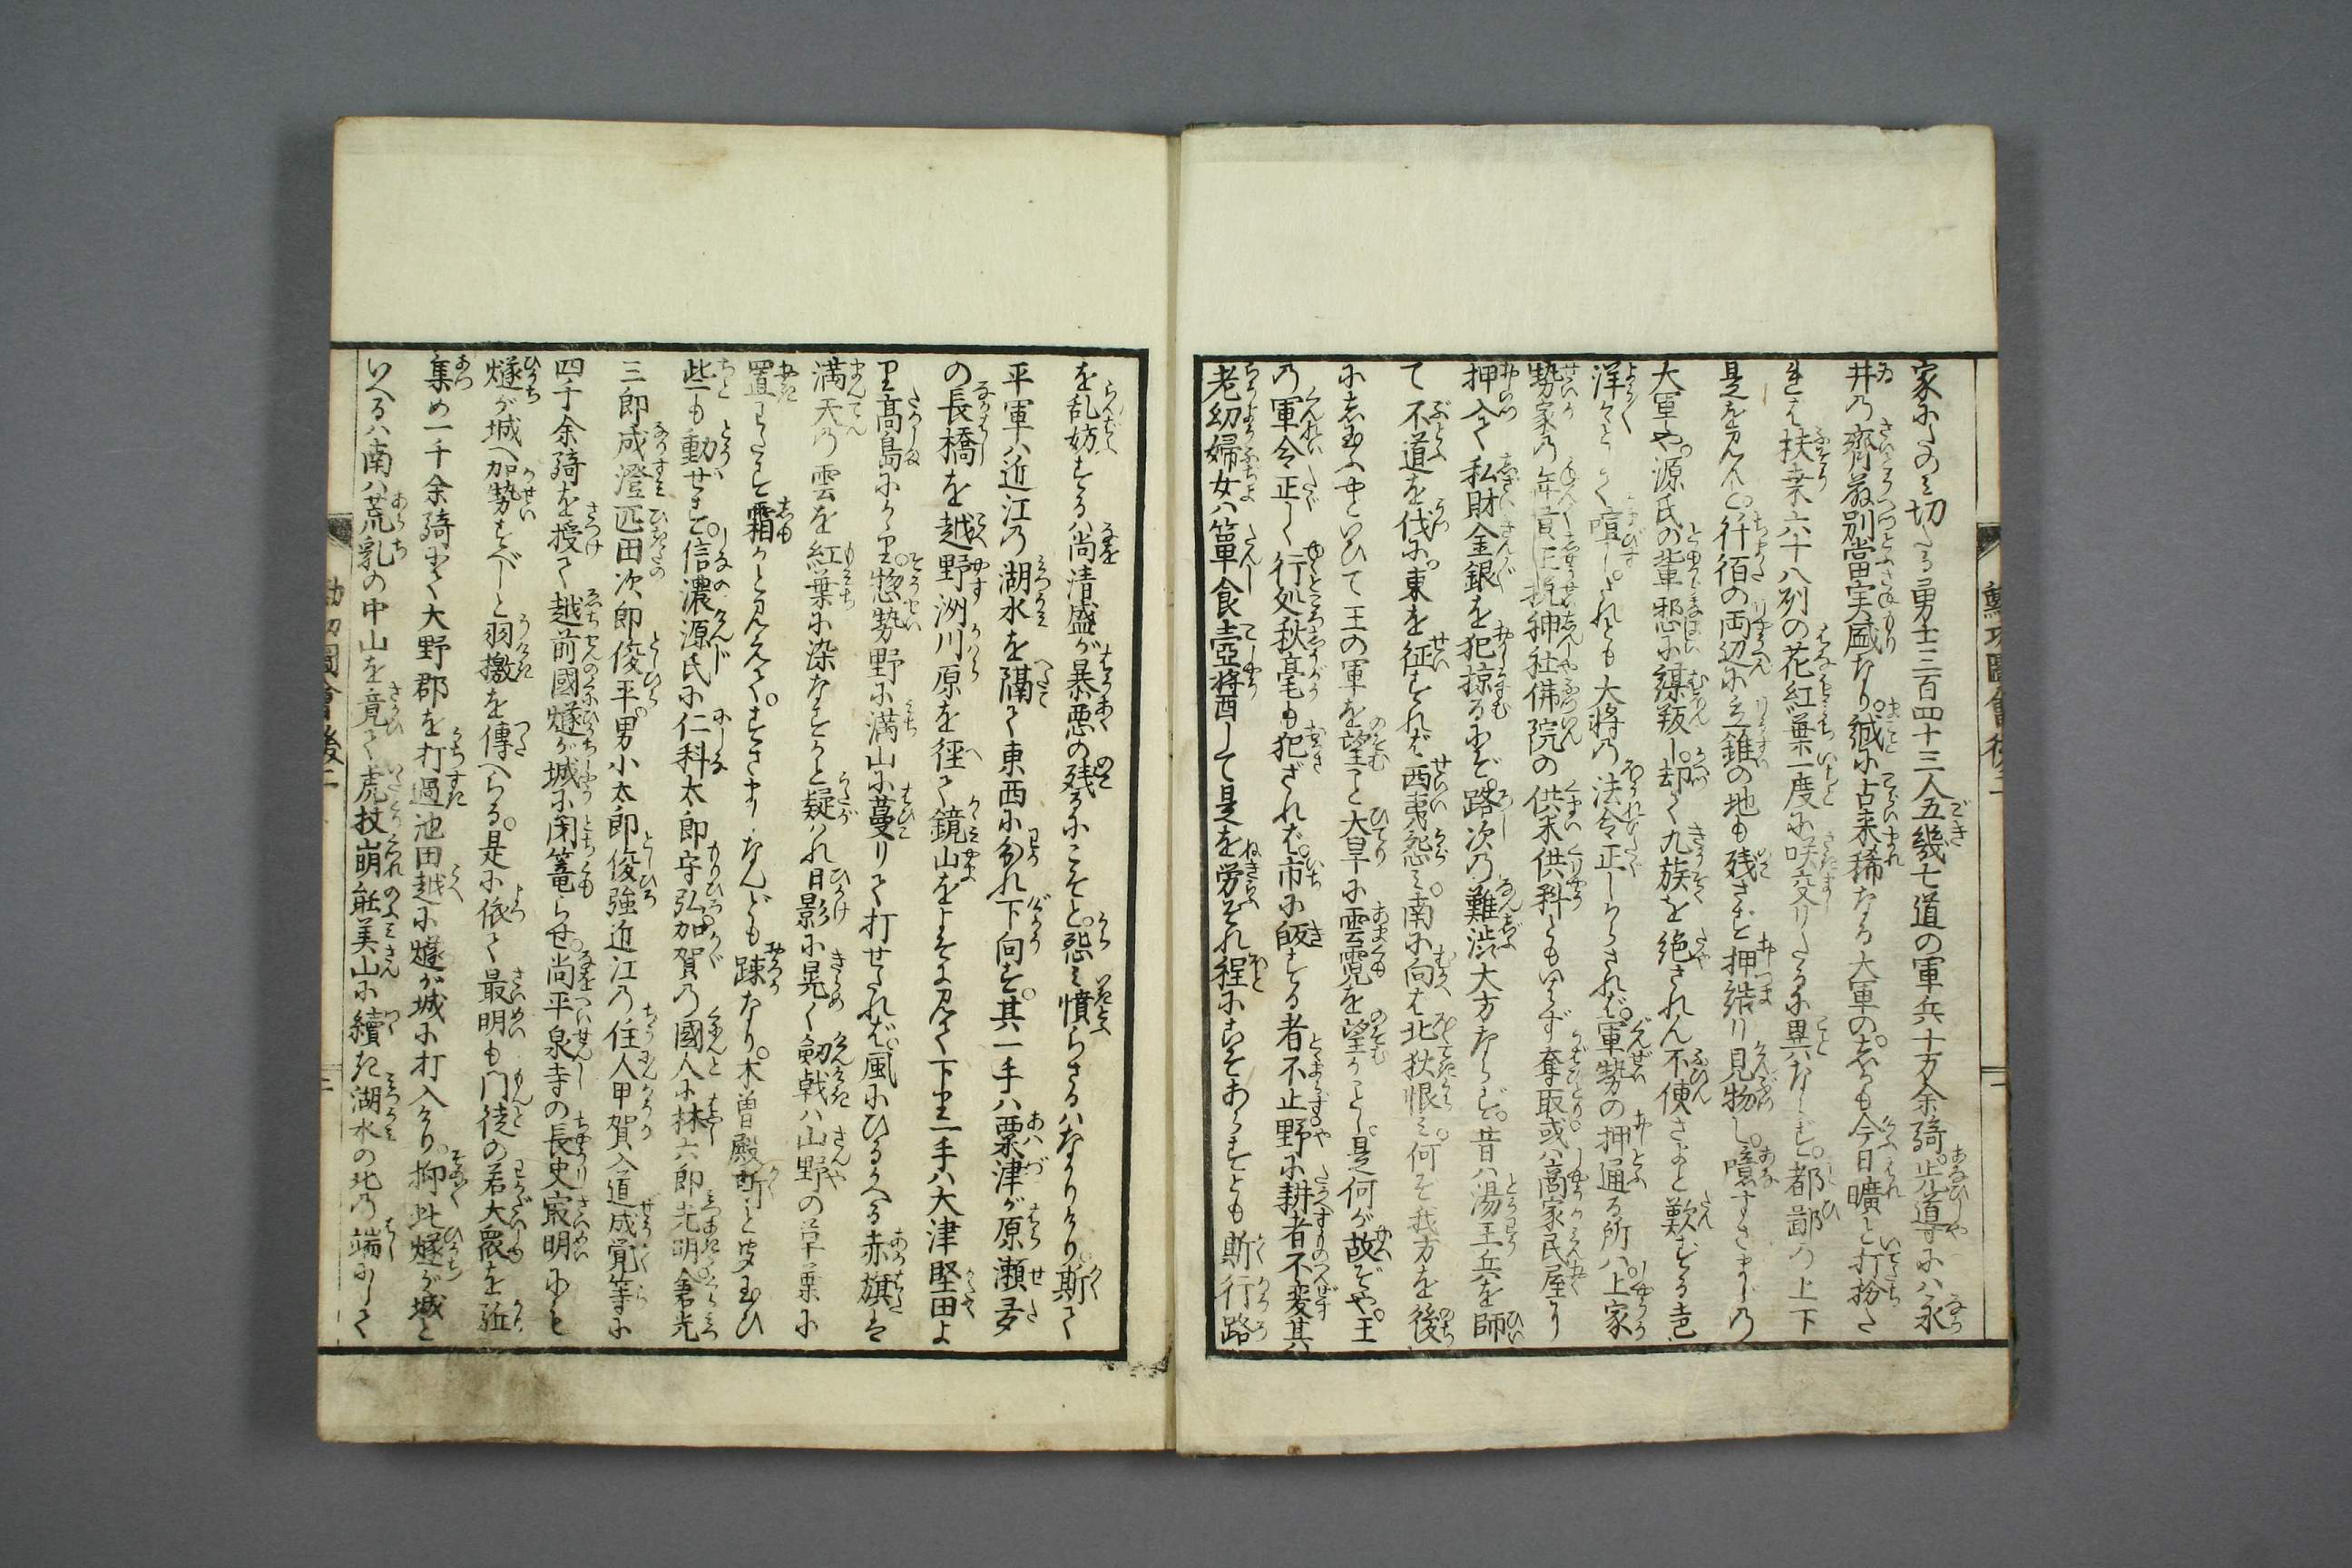 家にたのみ切たる勇士三百四十三人五幾七道の軍兵十万余騎先導には永
井の齋藤別當実盛なり誠に古来稀なる大軍のしかも今日曠と打扮た
れば扶桒六十八列の花紅葉一度に咲交りたるに異ならず都鄙の上下
是を見んと行佰の両辺に立錐の地も残さず押結り見物し噫すさまじの
大軍や源氏の輩邪悪に謀叛し却て九族を絶されん不便さよと歎ずる声
洋々として喧しされども大将の法令正しからされば軍勢の押通る所ハ上家
勢家の年貢正税神社佛院の供米供料ともいはず奪取或ハ商家民屋に
押入て私財金銀を犯掠るにぞ路次の難渋大方ならず昔ハ湯王兵を師
て不道を伐に東を征すれば西夷怨ミ南に向へば北狄恨ミ何ぞ我方を後
にし玉ふやといひて王の軍を望こと大旱に雲霓を望がことし是何が故ぞや王
の軍令正しく行処秋毫も犯ざれば市に皈する者不止野に耕者不変其
老幼婦女ハ箪食壺漿して是を労ぞれ程にこそあらずとも斯行路
を乱妨するハ尚清盛が暴悪の残るにこそと怨ミ憤らさるハなかりけり斯て
平軍ハ近江の湖水を隔て東西に分れ下向す其一手ハ粟津が原瀬多
の長橋を越野洲川原を径て鏡山をよそに見て下り一手ハ大津堅田よ
り髙島にかゝり惣勢野に満山に蔓りて打せたれば風にひるがへる赤旗ハ
満天の雲を紅葉に染なすかと疑ハれ日影に晃く劔戟ハ山野の草葉に
置わたす霜かと見えてすさまじなんども踈なり木曽殿斯と聞玉ひ
些も動せず信濃源氏に仁科太郎守弘加賀の國人に林六郎光明倉光
三郎成澄匹田次郎俊平男小太郎俊強近江の住人甲賀入道成覚等に
四千余騎を授て越前國燧が城に閉篭らせ尚平泉寺の長史㝡明にも
燧が城へ加勢すべしと羽檄を傳へらる是に依て最明も門徒の若大衆を駈
集め一千余騎にて大野郡を打過池田越に燧が城に打入けり抑此燧が城と
いへるハ南ハ荒乳の中山を竟て虎杖崩能美山に續き湖水の北の端にして